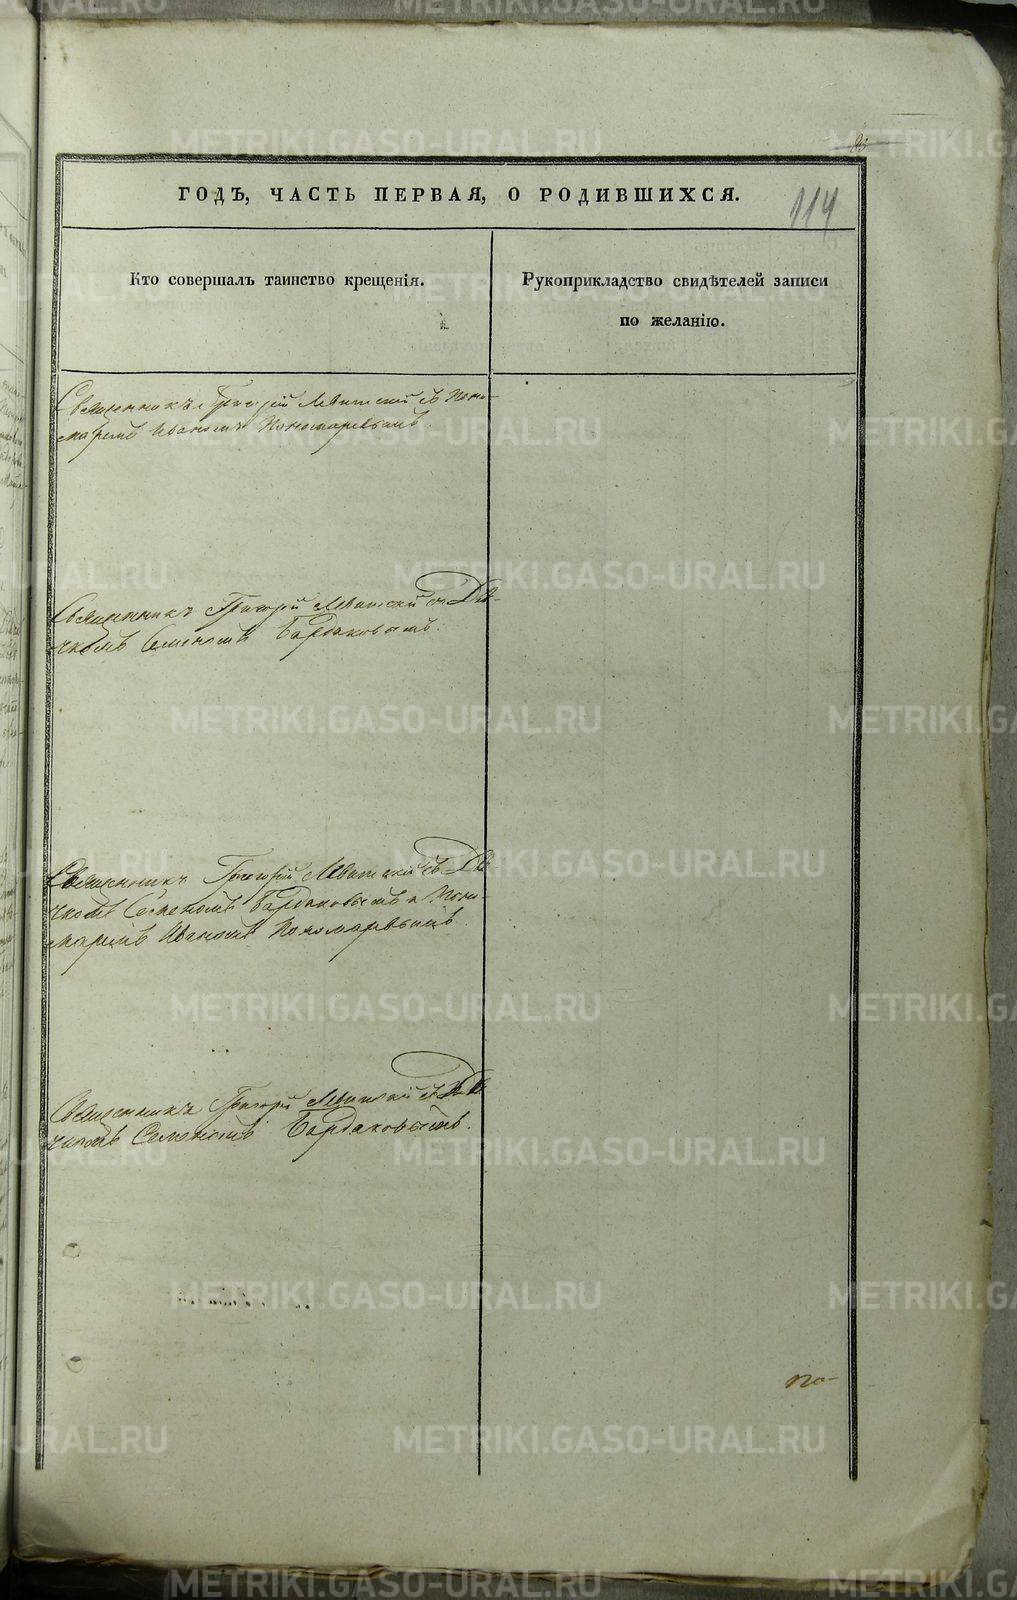 ГОДЪ, ЧАСТЬ ПЕРВАЯ, О РОДИВШИХСЯ.
114
Кто совершалъ таинство крещенія.
Рукоприкладство свидѣтелей записи
по желанію.
Священникъ Григорій Левитский съ Поно-
маремъ Иваномъ Пономаревымъ.
Священникъ Григорій Левитский съ Дья-
чкомъ Семеномъ Бардаковымъ.
Священникъ Григорій Левитский съ Дья-
чкомъ Семеномъ Бардаковымъ и Поно-
маремъ Иваномъ Пономаревымъ.
Священникъ Григорій Левитский съ Дья-
чкомъ Семеномъ Бардаковымъ.
по-
METRIKI.GASO-URAL.RU